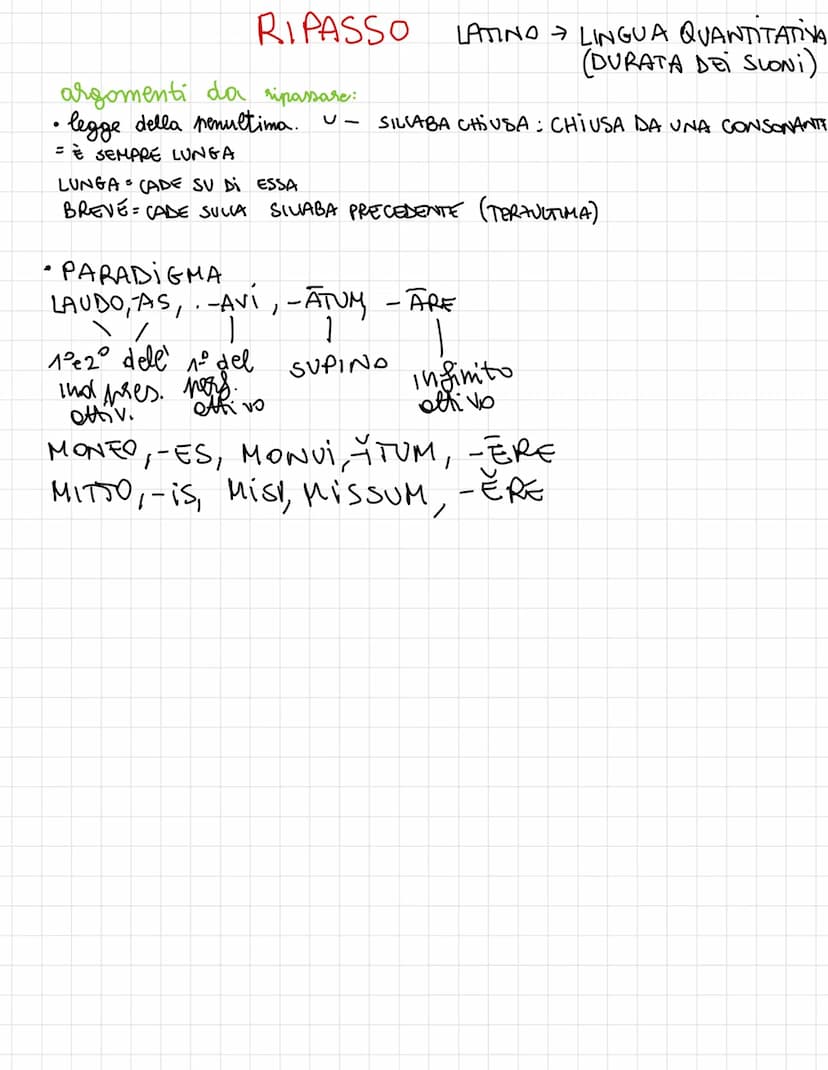 RIPASSO LATINO → LINGUA QUANTITATIVA
(DURATA DEI SUONI)
argomenti da ripassare:
• legge della penultima. ∪ — SILLABA CHIUSA : CHIUSA DA UNA CONSONANTE
= È SEMPRE LUNGA
LUNGA = CADE SU DI ESSA
BREVE = CADE SULLA SILLABA PRECEDENTE (TERZULTIMA)
• PARADIGMA
LAUDO,-AS, . -AVI, -ĀTUM, -ĀRE
1° e 2° dell' 1° del SUPINO infinito
ind pres. perf. attivo
attiv. attivo
MONEO,-ES, MONUI, -ĬTUM, -ĒRE
MITTO,-IS, MISI, MISSUM, -ĔRE